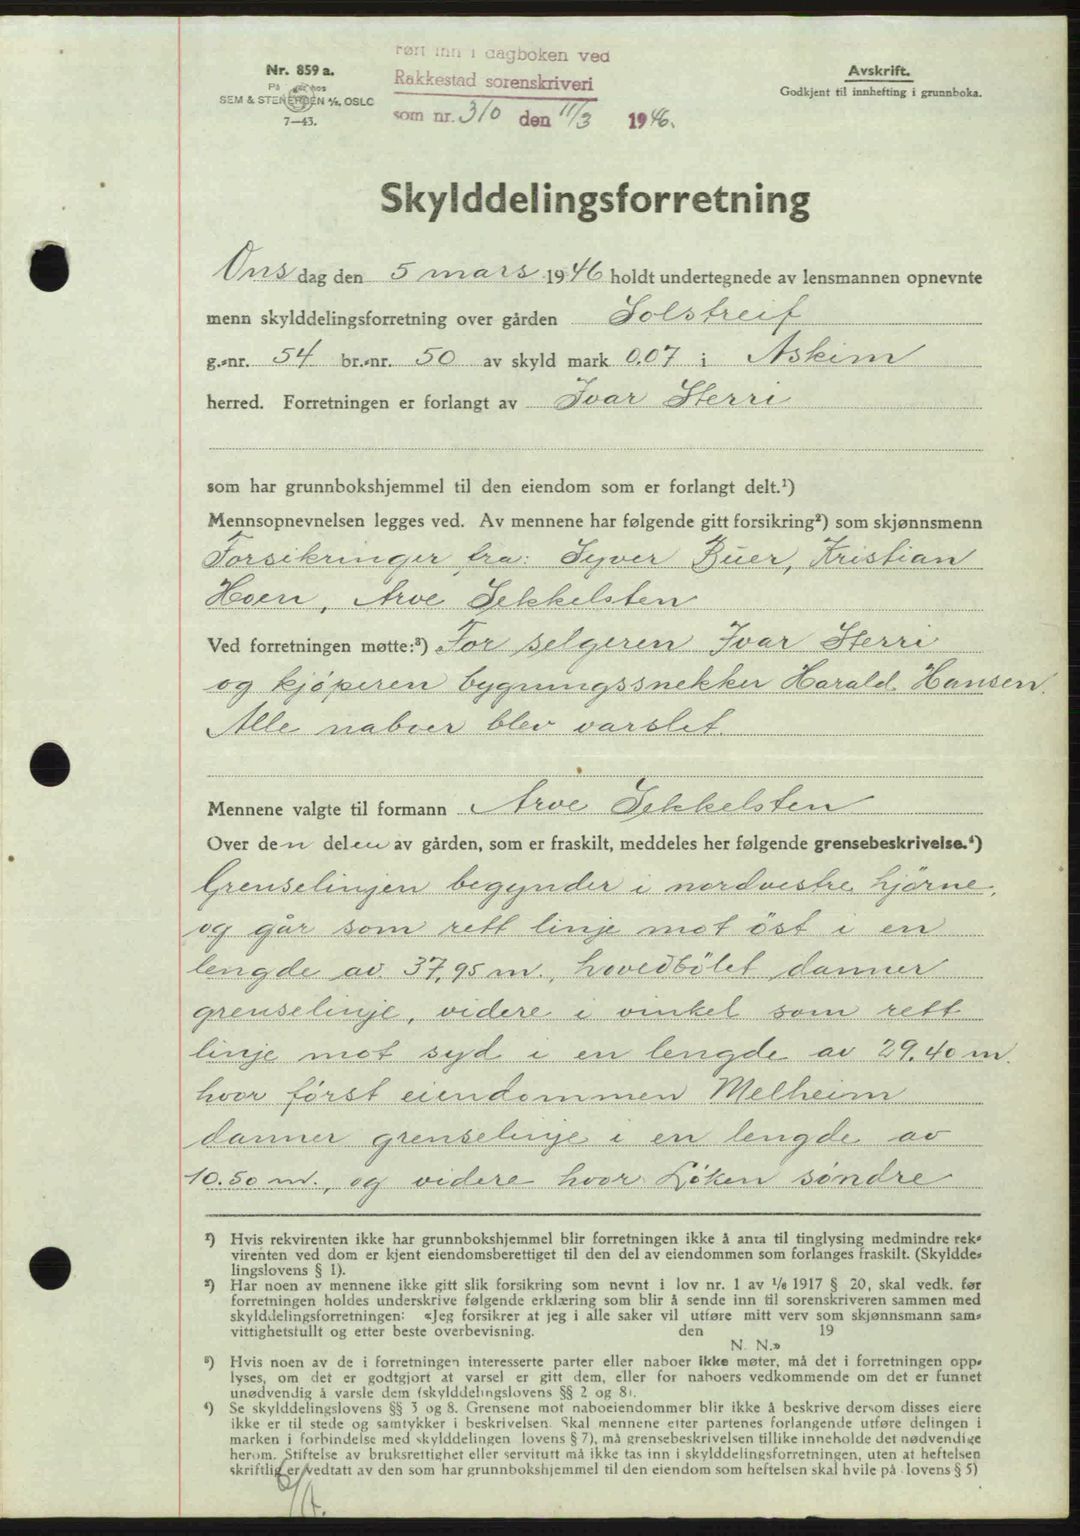 Nr. 859 a.
SEM & STENERSEN A/S, OSLO
7—43.
ført inn i dagboken ved
Rakkestad sorenskriveri
som nr. 310 den 11/3 1946.
Avskrift.
Godkjent til innhefting i grunnboka.
Skylddelingsforretning
Onsdag den 5 mars 1946 holdt undertegnede av lensmannen opnevnte
menn skylddelingsforretning over gården Solstreif
g.-nr. 54 br.-nr. 50 av skyld mark 0.07 i Askim
herred. Forretningen er forlangt av Ivar Sterri
som har grunnbokshjemmel til den eiendom som er forlangt delt.¹)
Mennsopnevnelsen legges ved. Av mennene har følgende gitt forsikring²) som skjønnsmenn
Forsikringer fra: Syver Buer, Kristian
Hoen, Arve Sekkelsten
Ved forretningen møtte:³) For selgeren Ivar Sterri
og kjøperen bygningssnekker Harald Hansen.
Alle naboer blev varslet.
Mennene valgte til formann Arve Sekkelsten
Over den delen av gården, som er fraskilt, meddeles her følgende grensebeskrivelse.⁴)
Grenselinjen begynder i nordvestre hjørne,
og går som rett linje mot öst i en
lengde av 37,95 m., hovedbölet danner
grenselinje, videre i vinkel som rett
linje mot syd i en lengde av 29.40 m.
hvor først eiendommen Melheim
danner grenselinje i en lengde av
10.50 m., og videre hvor Løken søndre
¹) Hvis rekvirenten ikke har grunnbokshjemmel blir forretningen ikke å anta til tinglysing medmindre rek-
virenten ved dom er kjent eiendomsberettiget til den del av eiendommen som forlanges fraskilt. (Skyldde-
lingslovens § 1).
²) Har noen av mennene ikke gitt slik forsikring som nevnt i lov nr. 1 av 1/6 1917 § 20, skal vedk. før
forretningen holdes underskrive følgende erklæring som blir å sende inn til sorenskriveren sammen med
skylddelingsforretningen: «Jeg forsikrer at jeg i alle saker vil utføre mitt verv som skjønnsmann sam-
vittighetsfullt og etter beste overbevisning. den 19
N. N.»
³) Hvis noen av de i forretningen interesserte parter eller naboer ikke møter, må det i forretningen opp-
lyses, om det er godtgjort at varsel er gitt dem, eller for naboers vedkommende om det er funnet
unødvendig å varsle dem (skylddelingslovens §§ 2 og 8).
⁴) Se skylddelingslovens §§ 3 og 8. Grensene mot naboeiendommer blir ikke å beskrive dersom disses eiere
ikke er til stede og samtykker i beskrivelsen. Skal mennene etter partenes forlangende utføre delingen i
marken i forbindelse med skylddelingen lovens § 7), må grensebeskrivelsen tillike inneholde det nødvendige
herom. Stiftelse av bruksrettighet eller servitutt må ikke tas inn i skylddelingsforretningen, uten at heftelsen
skriftlig er vedtatt av den som har grunnbokshjemmel til den eiendom som heftelsen skal hvile på lovens § 5)